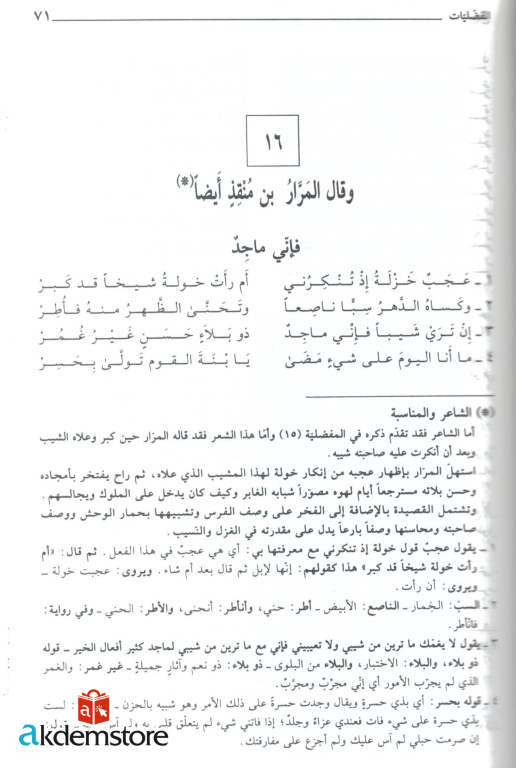 المفضليّات
٧١
١٦
وقال المَرَّارُ بن مُنْقِذٍ أَيضاً(*)
فإنّي ماجِدٌ
١ ـ عَجَبٌ خَوْلَةُ إذ تُنْكِرُني أم رأتْ خولةُ شيخاً قد كَبَرْ
٢ ـ وكساهُ الدَّهرُ سِبًّا ناصِعاً وتَحَنَّى الظَّهرُ منهُ فأُطِرْ
٣ ـ إنْ تَرَيْ شَيباً فإنّي ماجِدٌ ذو بَلاَءٍ حَسَنٍ غَيْرُ غُمُرْ
٤ ـ ما أنا اليومَ على شيءٍ مَضَى يَا بْنَةَ القومِ تَولَّى بِحَسِرْ
(*) الشاعر والمناسبة
أما الشاعر فقد تقدّم ذكره في المفضليّة (١٥) وأمّا هذا الشعر فقد قاله المرّار حين كبر وعلاه الشيب
وبعد أن أنكرت عليه صاحبته شيبه.
استهلّ المرّار بإظهار عجبه من إنكار خولة لهذا المشيب الذي علاه، ثم راح يفتخر بأمجاده
وحسن بلائه مسترجعاً أيام لهوه مصوّراً شبابه الغابر وكيف كان يدخل على الملوك ويجالسهم.
وتشتمل القصيدة بالإضافة إلى الفخر على وصف الفرس وتشبيهها بحمار الوحش ووصف
صاحبته ومحاسنها وصفاً بارعاً يدل على مقدرته في الغزل والنّسيب.
١ ـ يقول عجبٌ قول خولة إذ تنكرني مع معرفتها بي: أي هي عجبٌ في هذا الفعل. ثم قال: «أم
رأت خولة شيخاً قد كبر» هذا كقولهم: إنّها لإبل ثم قال بعد أم شاء. ويروى: عجبت خولة ـ
ويروى: أن رأت.
٢ ـ السبّ: الخِمار ـ الناصع: الأبيض ـ أطر: حني، وأناطر: أنحنى، والأطر: الحني ـ وفي رواية:
فانأطر.
٣ ـ يقول لا يغمّك ما ترين من شيبي ولا تعيبيني فإني مع ما ترين من شيبي لماجد كثير أفعال الخير ـ قوله
ذو بلاء، والبلاء: الاختبار، والبلاء من البلوى ـ ذو بلاء: ذو نعم وآثار جميلة ـ غير غمر: والغمر
الذي لم يجرّب الأمور أي إنّي مجرِّبٌ ومجرَّبٌ.
٤ ـ قوله بحسر: أي بذي حسرةٍ ويقال وجدت حسرةً على ذلك الأمر وهو شبيه بالحزن ـ لست
بذي حسرة على شيء فات فعندي عزاءٌ وجلدٌ؛ إذا فاتني شيء لم يتعلّق قلبي به ولم آس
إن صرمت حبلي لم آس عليك ولم أجزع على مفارقتك.
akdemstore